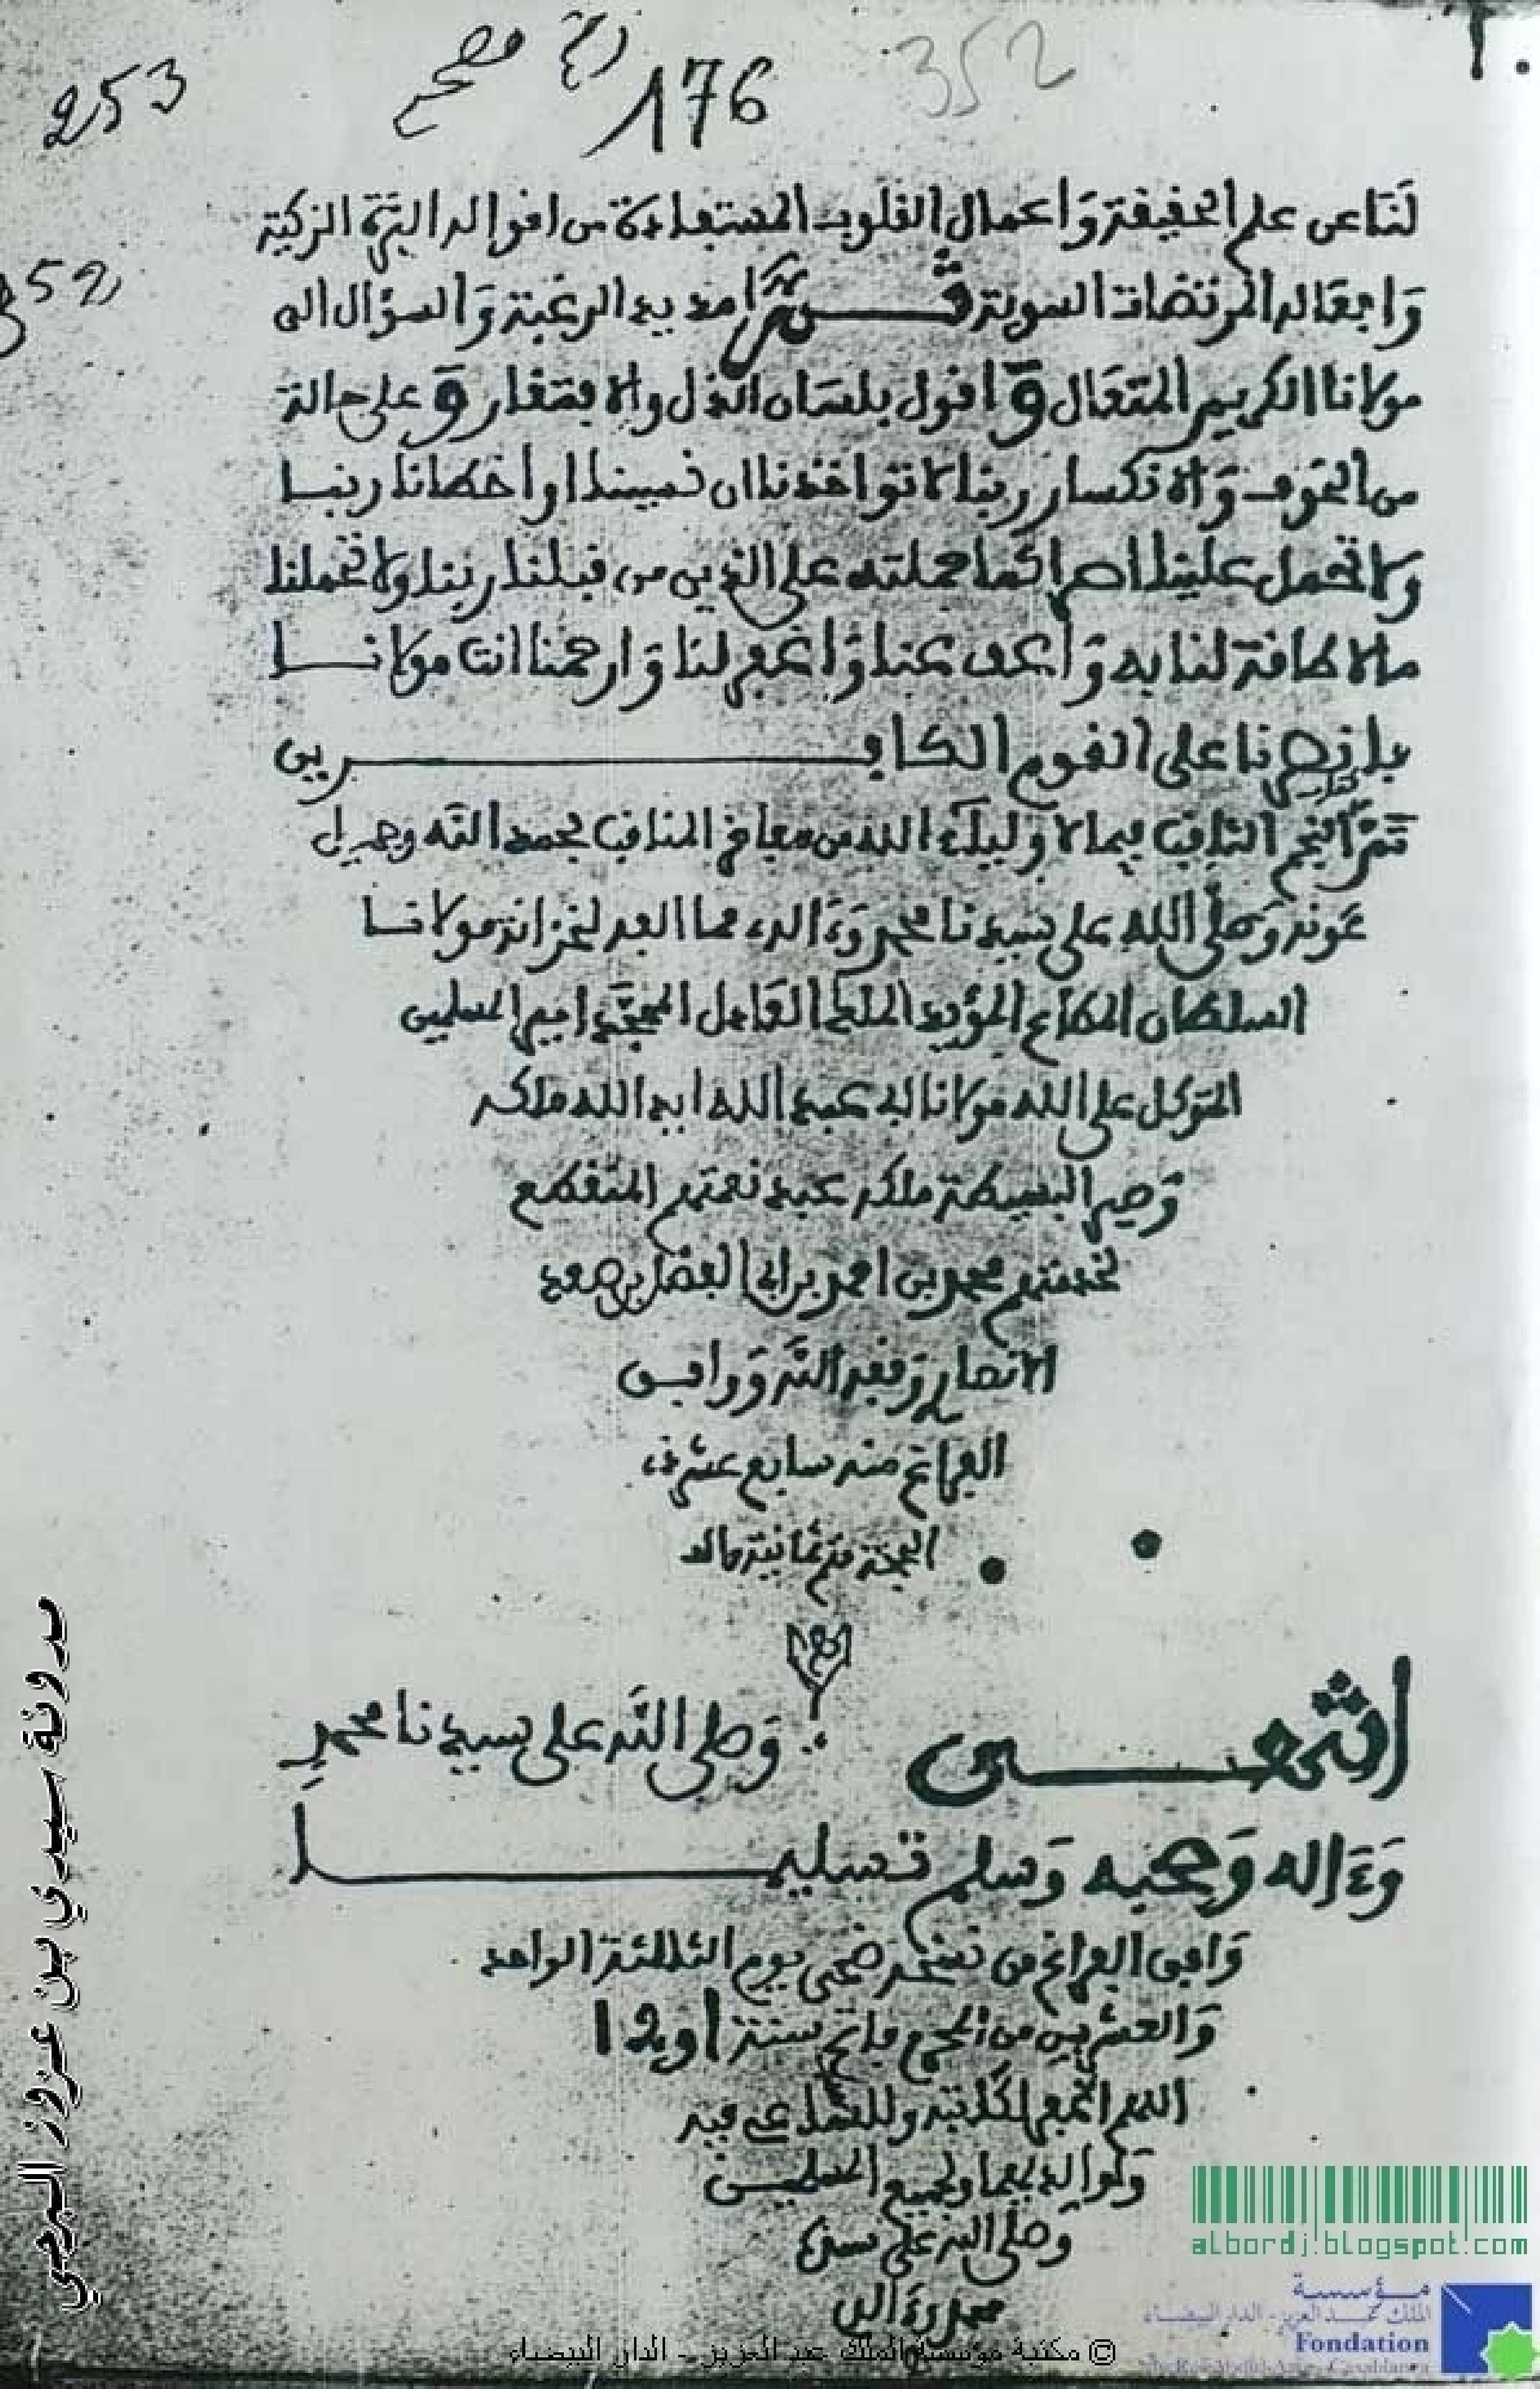 253
176
352
لنا من علم الحقيقة وأعمال القلوب المستفادة من أقواله البرة الزكية
وأفعاله المرتضات السوية ثم أمد يد الرغبة والسؤال الى
مولانا الكريم المتعال وأقول بلسان الذل والافتقار وعلى حالة
من الخوف والانكسار ربنا لا تواخذنا ان نسينا او أخطانا ربنا
ولا تحمل علينا اصرا كما حملته على الذين من قبلنا ربنا ولا تحملنا
ما لا طاقة لنا به واعف عنا واغفر لنا وارحمنا انت مولانا
فانصرنا على القوم الكافرين
النجم الثاقب فيما لأولياء الله من مفاخر المناقب بحمد الله وجميل
عونه وصلى الله على سيدنا محمد وءاله مما الف لخزانة مولانا
السلطان المطاع المؤيد الملك العادل امير المسلمين
المتوكل على الله مولانا ابي عبد الله ايد الله ملكه
وصير البسيطة ملكه عبد نعمتهم المنقطع
لخدمتهم محمد بن احمد بن ابي الفضل بن صعد
الانصاري وفقه الله ووافق
الفراغ منه سابع عشر ذي
الحجة متم ثمانية مائة
انتهى وصلى الله على سيدنا محمد
وءاله وصحبه وسلم تسليما
وافق الفراغ من نسخه ضحى يوم الثلاثة الواحد
والعشرين من المحرم فاتح سنة
اللهم اغفر لكاتبه وللناظر فيه
ولوالديهما ولجميع المسلمين
وصلى الله على سيدنا
محمد وءاله
مدونة سيدي بن عزوز البرجي
albordj.blogspot.com
مؤسسة
الملك عبد العزيز - الدار البيضاء
Fondation
© مكتبة مؤسسة الملك عبد العزيز - الدار البيضاء